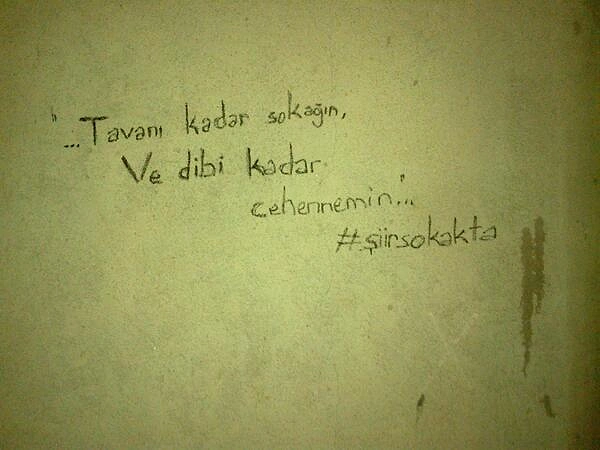 "...Tavanı kadar sokağın,
Ve dibi kadar
cehennemin..."
#şiirsokakta